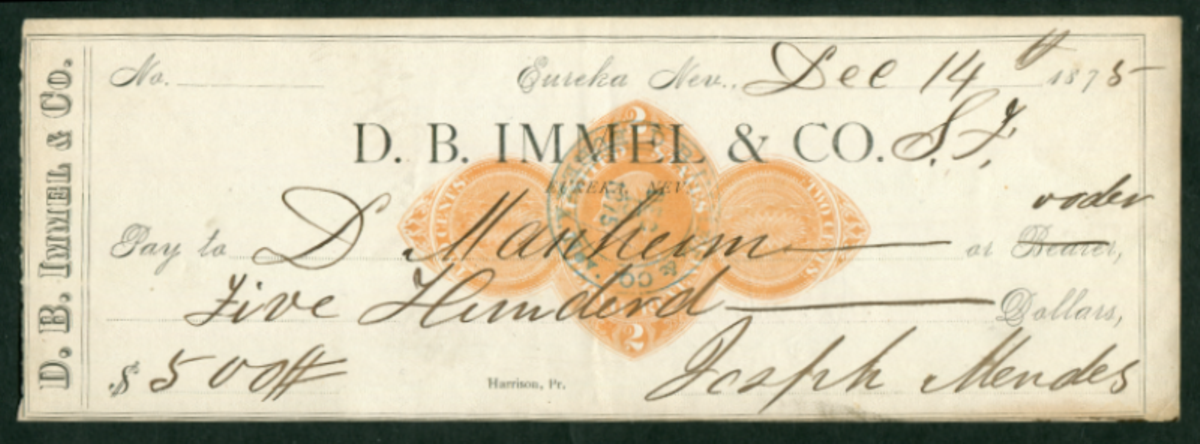 D. B. IMMEL & CO.
No. Eureka Nev., Dec 14th 1875
D. B. IMMEL & CO. S. F.
EUREKA, NEV.
oder
Pay to D Manheim or Bearer,
Five Hunderd Dollars,
$ 500 Harrison, Pr. Joseph Mendes
2
2
TWO CENTS
& CO.